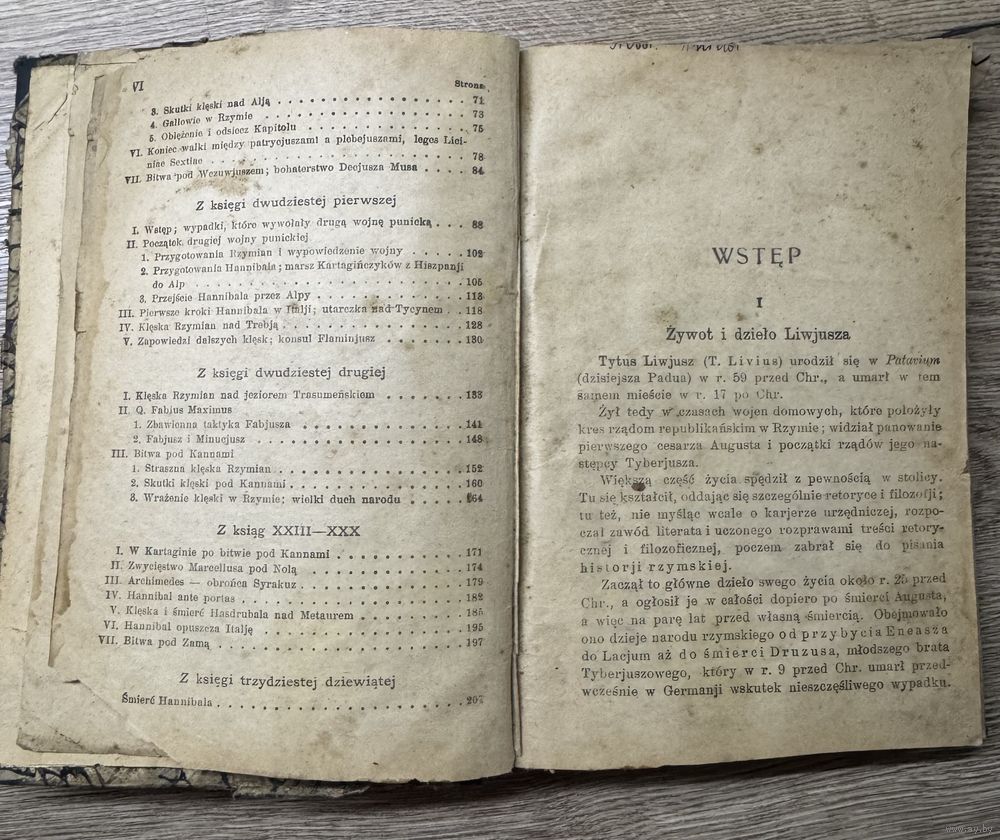 VI Strona
3. Skutki klęski nad Alją . . . . . . . . . . . . . . . . 71
4. Gallowie w Rzymie . . . . . . . . . . . . . . . . 73
5. Oblężenie i odsiecz Kapitolu . . . . . . . . . . . . . 75
VI. Koniec walki między patrycjuszami a plebejuszami, leges Lici-
niae Sextiae . . . . . . . . . . . . . . . . . . . 78
VII. Bitwa pod Wezuwjuszem; bohaterstwo Decjusza Musa . . . . 84
Z księgi dwudziestej pierwszej
I. Wstęp; wypadki, które wywołały drugą wojnę punicką . . . 88
II. Początek drugiej wojny punickiej
1. Przygotowania Rzymian i wypowiedzenie wojny . . . . . 102
2. Przygotowania Hannibala; marsz Kartagińczyków z Hiszpanji
do Alp . . . . . . . . . . . . . . . . . . . . 105
3. Przejście Hannibala przez Alpy . . . . . . . . . . . . 113
III. Pierwsze kroki Hannibala w Italji; utarczka nad Tycynem . . 118
IV. Klęska Rzymian nad Trebją . . . . . . . . . . . . . . 128
V. Zapowiedzi dalszych klęsk; konsul Flaminjusz . . . . . . . 130
Z księgi dwudziestej drugiej
I. Klęska Rzymian nad jeziorem Trasumeńskiem . . . . . . . 133
II. Q. Fabius Maximus
1. Zbawienna taktyka Fabjusza . . . . . . . . . . . . . 141
2. Fabjusz i Minucjusz . . . . . . . . . . . . . . . . 148
III. Bitwa pod Kannami
1. Straszna klęska Rzymian . . . . . . . . . . . . . . 152
2. Skutki klęski pod Kannami . . . . . . . . . . . . . 160
3. Wrażenie klęski w Rzymie; wielki duch narodu . . . . . 164
Z ksiąg XXIII—XXX
I. W Kartaginie po bitwie pod Kannami . . . . . . . . . . 171
II. Zwycięstwo Marcellusa pod Nolą . . . . . . . . . . . . 174
III. Archimedes — obrońca Syrakuz . . . . . . . . . . . . . 179
IV. Hannibal ante portas . . . . . . . . . . . . . . . . 182
V. Klęska i śmierć Hasdrubala nad Metaurem . . . . . . . . 185
VI. Hannibal opuszcza Italję . . . . . . . . . . . . . . . 195
VII. Bitwa pod Zamą . . . . . . . . . . . . . . . . . . 197
Z księgi trzydziestej dziewiątej
Śmierć Hannibala . . . . . . . . . . . . . . . . . . . 207
WSTĘP
I
Żywot i dzieło Liwjusza
Tytus Liwjusz (T. Livius) urodził się w Patavium
(dzisiejsza Padua) w r. 59 przed Chr., a umarł w tem
samem mieście w r. 17 po Chr.
Żył tedy w czasach wojen domowych, które położyły
kres rządom republikańskim w Rzymie; widział panowanie
pierwszego cesarza Augusta i początki rządów jego na-
stępcy Tyberjusza.
Większą część życia spędził z pewnością w stolicy.
Tu się kształcił, oddając się szczególnie retoryce i filozofji;
tu też, nie myśląc wcale o karjerze urzędniczej, rozpo-
czął zawód literata i uczonego rozprawami treści retory-
cznej i filozoficznej, poczem zabrał się do pisania
historji rzymskiej.
Zaczął to główne dzieło swego życia około r. 25 przed
Chr., a ogłosił je w całości dopiero po śmierci Augusta,
a więc na parę lat przed własną śmiercią. Obejmowało
ono dzieje narodu rzymskiego od przybycia Eneasza
do Lacjum aż do śmierci Druzusa, młodszego brata
Tyberjuszowego, który w r. 9 przed Chr. umarł przed-
wcześnie w Germanji wskutek nieszczęśliwego wypadku.
www.ay.by